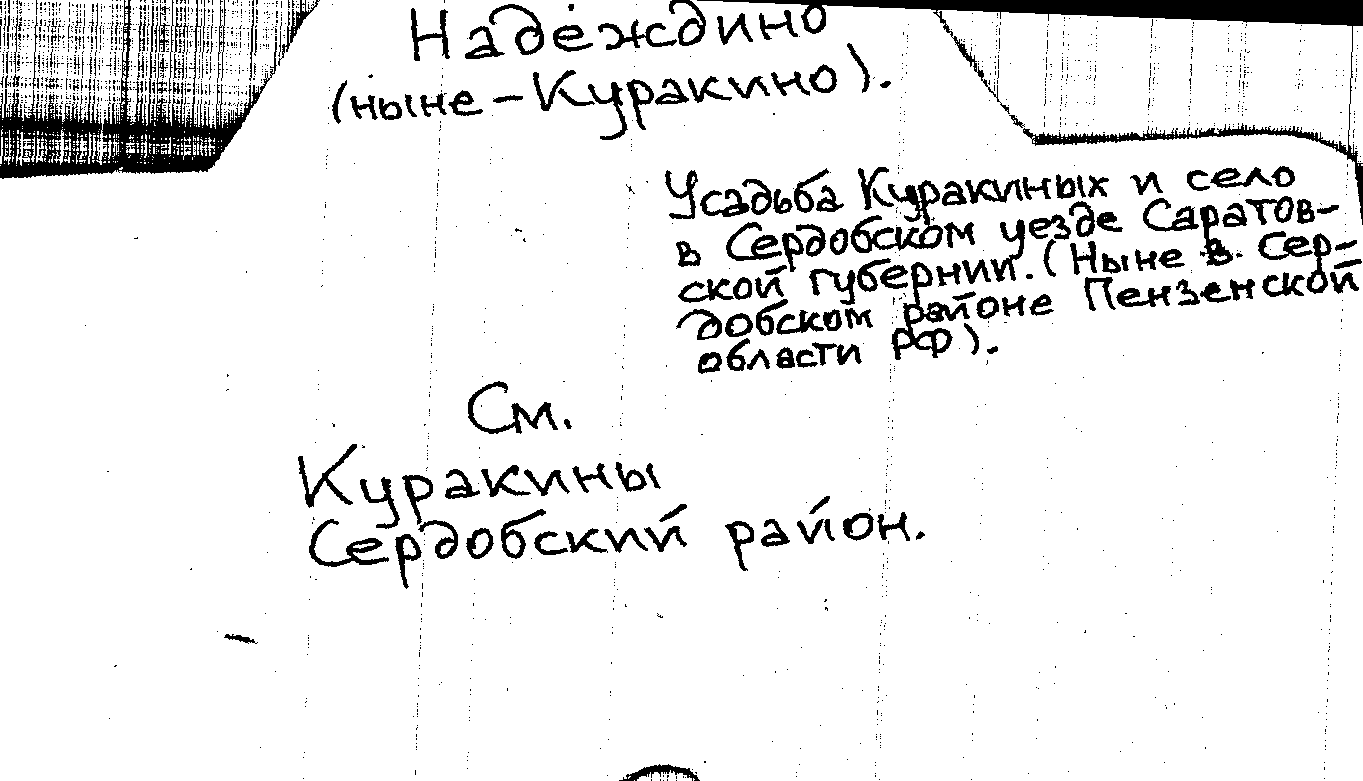 Надеждино
(ныне – Куракино).
Усадьба Куракиных и село
в Сердобском уезде Саратов-
ской губернии. (Ныне в Сер-
добском районе Пензенской
области РФ).
См.
Куракины
Сердобский район.